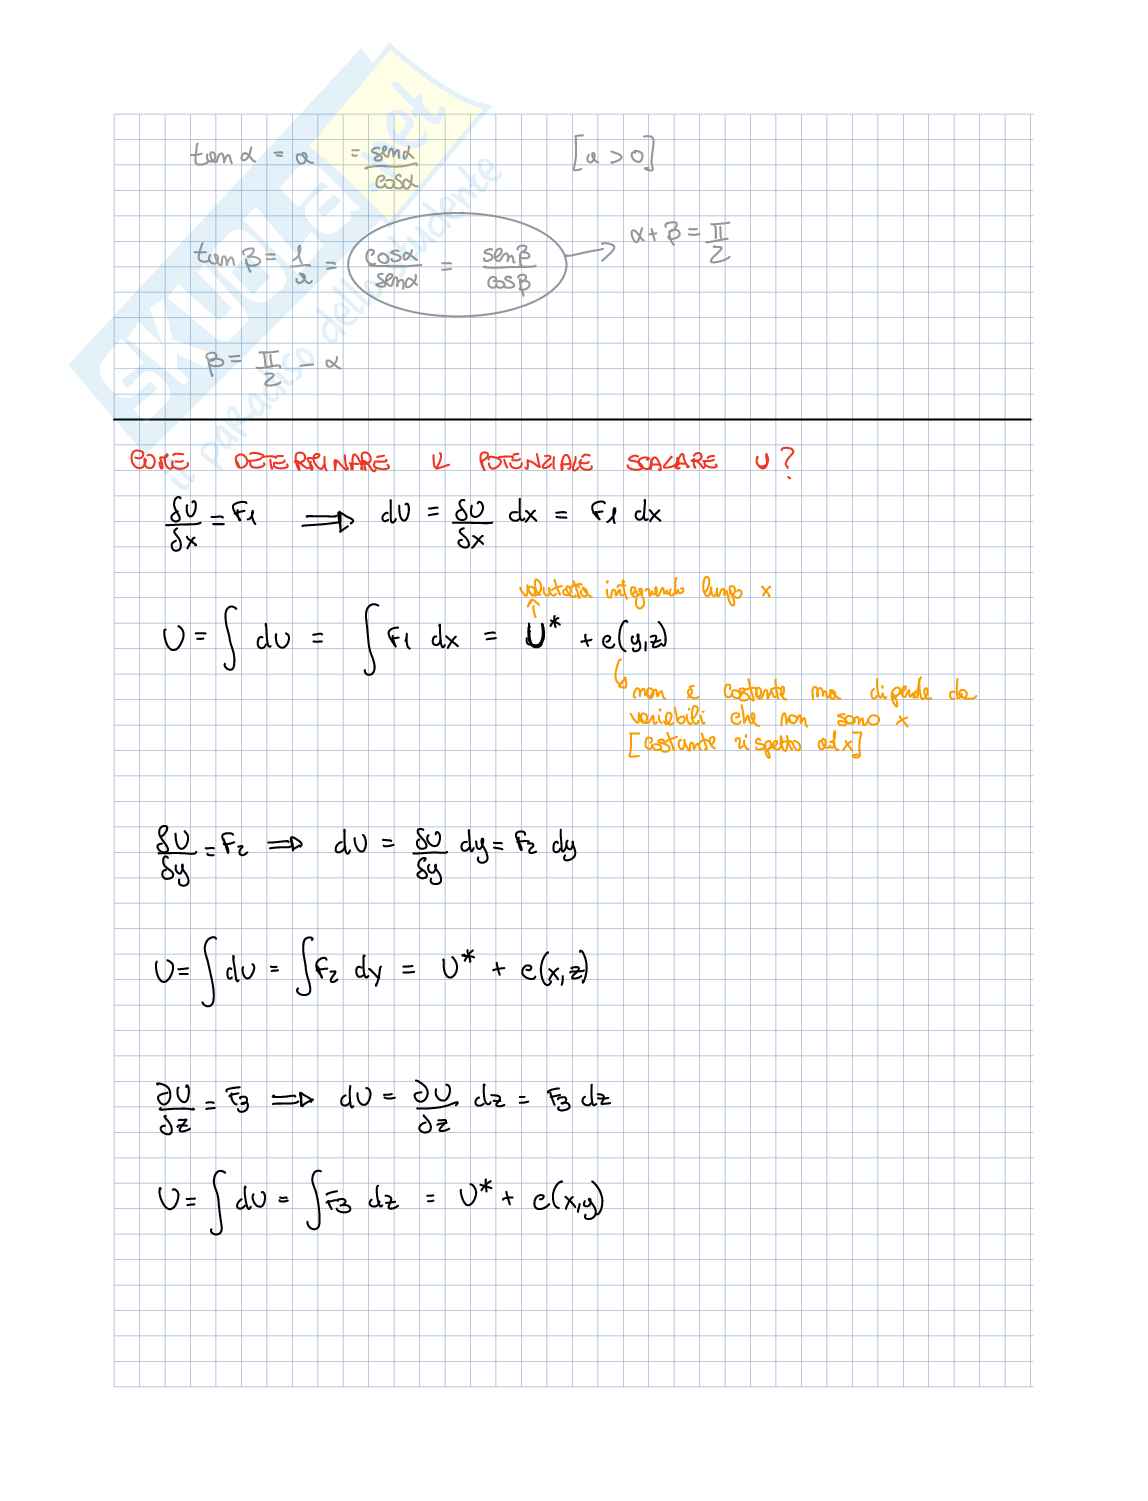 SKUOLA.net
il paradiso dello studente
tan α = a = senα/cosα [a > 0]
tan β = 1/a = cosα/senα = senβ/cosβ → α + β = π/2
β = π/2 - α
COME DETERMINARE IL POTENZIALE SCALARE U?
δU/δx = F1 ⟹ dU = δU/δx dx = F1 dx
valutata integrando lungo x
U = ∫ dU = ∫ F1 dx = U* + c(y,z)
non è costante ma dipende da
variabili che non sono x
[costante rispetto ad x]
δU/δy = F2 ⟹ dU = δU/δy dy = F2 dy
U = ∫ dU = ∫ F2 dy = U* + c(x,z)
∂U/∂z = F3 ⟹ dU = ∂U/∂z dz = F3 dz
U = ∫ dU = ∫ F3 dz = U* + c(x,y)